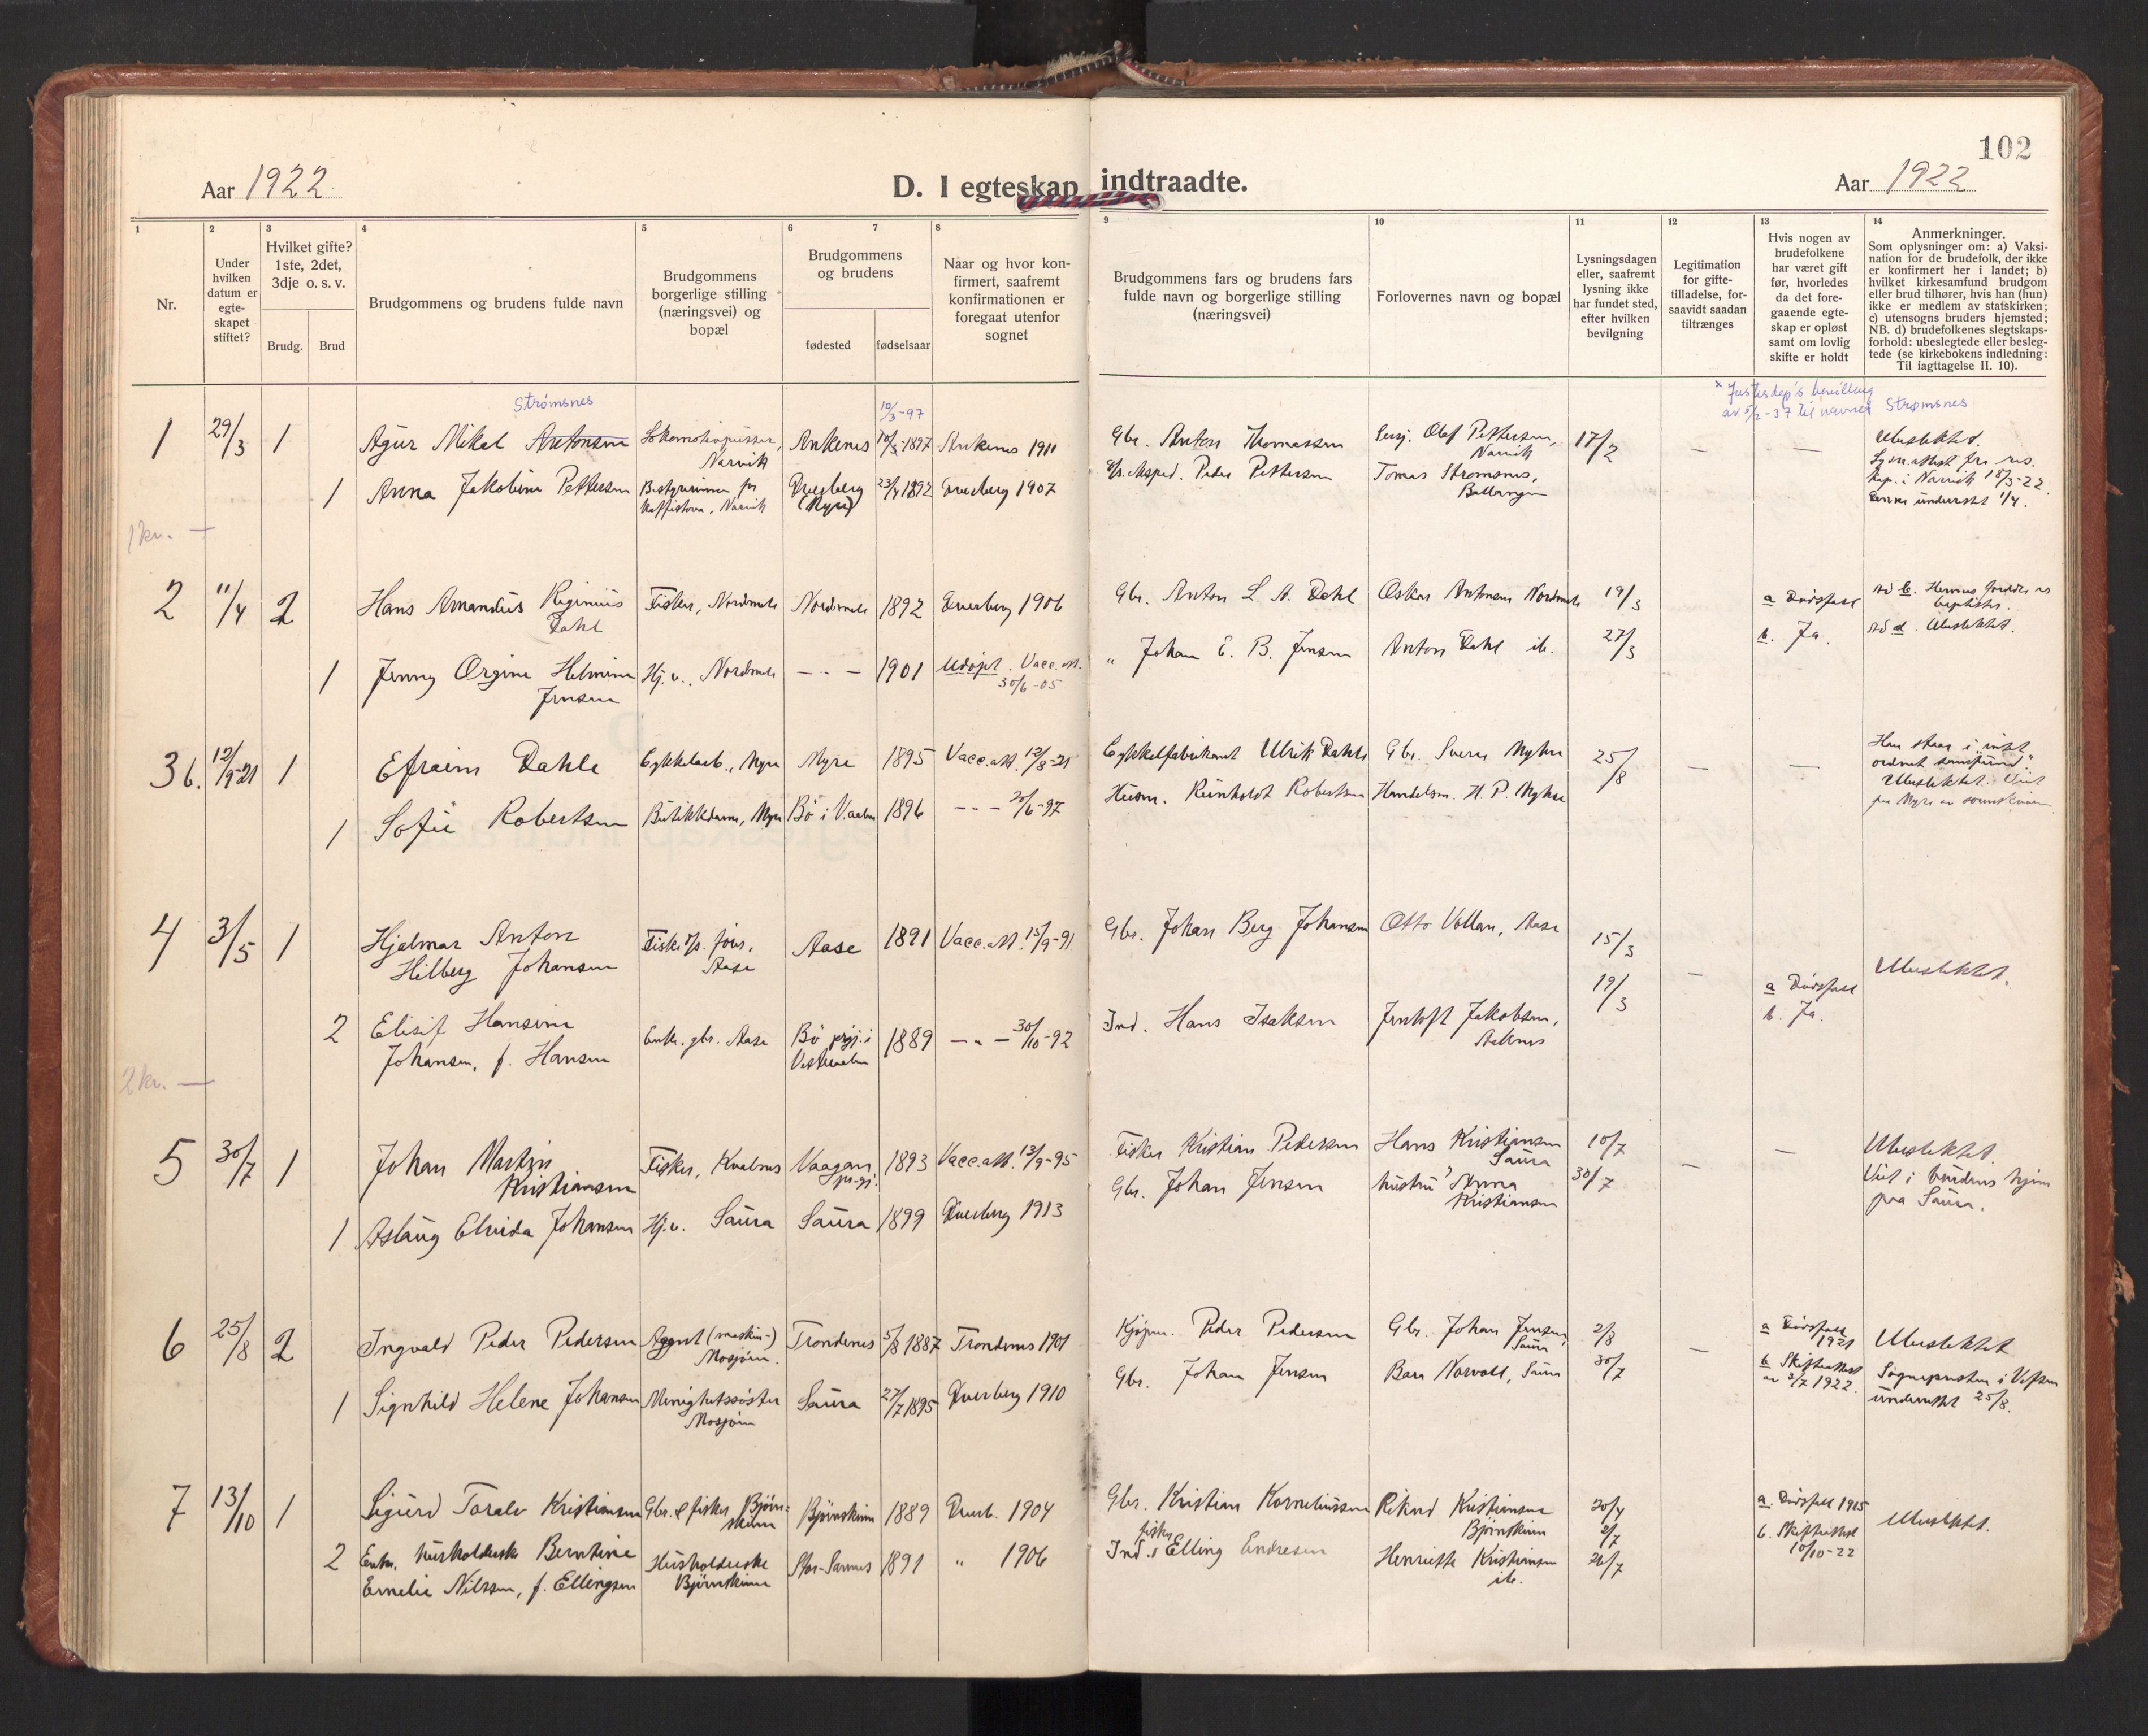 102
Aar 1922
D. I egteskap indtraadte.
Aar 1922
1
Nr.
2
Under
hvilken
datum er
egte-
skapet
stiftet?
3
Hvilket gifte?
1ste, 2det,
3dje o. s. v.
Brudg.
Brud
4
Brudgommens og brudens fulde navn
5
Brudgommens
borgerlige stilling
(næringsvei) og
bopæl
6
7
Brudgommens
og brudens
fødested
fødselsaar
8
Naar og hvor kon-
firmert, saafremt
konfirmationen er
foregaat utenfor
sognet
9
Brudgommens fars og brudens fars
fulde navn og borgerlige stilling
(næringsvei)
10
Forlovernes navn og bopæl
11
Lysningsdagen
eller, saafremt
lysning ikke
har fundet sted,
efter hvilken
bevilgning
12
Legitimation
for gifte-
tilladelse, for-
saavidt saadan
tiltrænges
13
Hvis nogen av
brudefolkene
har været gift
før, hvorledes
da det fore-
gaaende egte-
skap er opløst
samt om lovlig
skifte er holdt
14
Anmerkninger.
Som oplysninger om: a) Vaksi-
nation for de brudefolk, der ikke
er konfirmert her i landet; b)
hvilket kirkesamfund brudgom
eller brud tilhører, hvis han (hun)
ikke er medlem av statskirken;
c) utensogns bruders hjemsted;
NB. d) brudefolkenes slegtskaps-
forhold: ubeslegtede eller besleg-
tede (se kirkebokens indledning:
Til iagttagelse II. 10).
x Justisdep's bevilling
av 5/2-37 til navnet Strømsnes
Strømsnes
10/3-97
1 29/3 1 Agur Mikal Antonsen Lokomotivpusser, Narvik Ankenes 10/3-1897 Ankenes 1911 Gbr. Anton Thomassen Olaf Pettersen, Narvik 17/2 — — Ubeslektet.
1 Anna Jakobine Pettersen Bestyrerinne for Kaffistova, Narvik Dverberg (Myre) 23/4 1892 Dverberg 1907 Peder Pettersen Tomas Strømsnes, Ballangen
Lysn.attest fra res.
kap. i Narvik 18/3-22.
Denne underrettet 1/4.
1 kr. —
2 11/4 2 Hans Amandus Reginius Dahl Fisker, Nordmela Nordmela 1892 Dverberg 1906 Gbr. Anton L. A. Dahl Oskar Antonsen Nordmela 19/3 a Dødsfall
1 Jenny Ørgine Helmine Jensen Hj.v., Nordmela — " — 1901 Udøpt. Vacc.att. 30/6-05 " Johan E. B. Jensen Anton Dahl ib. 27/3 b. Ja.
Ad b. Hennes forældre er
baptister.
Ad d. Ubeslektet.
3 b. 12/9-21 1 Efraim Dahle Cykkelarb., Myre Myre 1895 Vacc.att. 12/8-21 Cykkelfabrikant Ulrik Dahle Gbr. Sverre Myhre 25/8 — —
1 Sofie Robertsen Butikkdame, Myre Bø i V.aalen 1896 — " — 20/6-97 Husm. Reinholdt Robertsen Handelsm. H. P. Myhre
Han staar i "intet
ordnet samfund".
Ubeslektet. Viet
paa Myre av
4 3/5 1 Hjalmar Anton Hilberg Johansen Fisker Aase Aase 1891 Vacc.att. 15/9-91 Gbr. Johan Berg Johansen Otto Vollan, Aase 15/3 — Ubeslektet.
2 Elisif Hansine Johansen, f. Hansen Enke. gbr. Aase Bø prgj. i Vesteraalen 1889 — " — 30/10-92 Ind. Hans Isaksen Jentoft Jakobsen, 19/3 a Dødsfall
b. Ja.
2 kr. —
5 30/7 1 Johan Martin Kristiansen Fisker, Kvalnes Vaagan pr.gj. 1893 Vacc.att. 13/9-95 Fisker Kristian Pedersen Hans Kristiansen Saura 10/7 — — Ubeslektet.
1 Aslaug Elvida Johansen Hj.v. Saura Saura 1899 Dverberg 1913 Gbr. Johan Jensen hustru Anna Kristiansen 30/7
Viet i brudens hjem
paa Saura.
6 25/8 2 Ingvald Peder Pedersen Agent (maskin-) Mosjøen. Trondenes 5/8 1887 Trondenes 1901 Kjøpm. Peder Pedersen Gbr. Johan Jensen, Saura 2/8 — a Dødsfall 1921 Ubeslektet
1 Signhild Helene Johansen Menighetssøster Mosjøen Saura 27/7 1895 Dverberg 1910 Gbr. Johan Jensen Saura 30/7 b Skifteattest av 3/7 1922.
Sognepresten i Vefsen
underrettet 25/8.
7 13/10 1 Sigurd Toralv Kristiansen Gbr. & fisker Bjørnskinn Bjørnskinn 1889 Dverb. 1904 Gbr. Kristian Korneliussen Rikard Kristiansen Bjørnskinn 20/4 a. Dødsfall 1915 Ubeslektet.
2/7
2 Enke, husholderske Berntine Emelie Nilssen, f. Ellingsen Husholderske Bjørnskinn 1891 " 1906 Ind. & fisker Elling Endresen Henriette Kristiansen ib. 26/7 b. Skifteattest 10/10-22